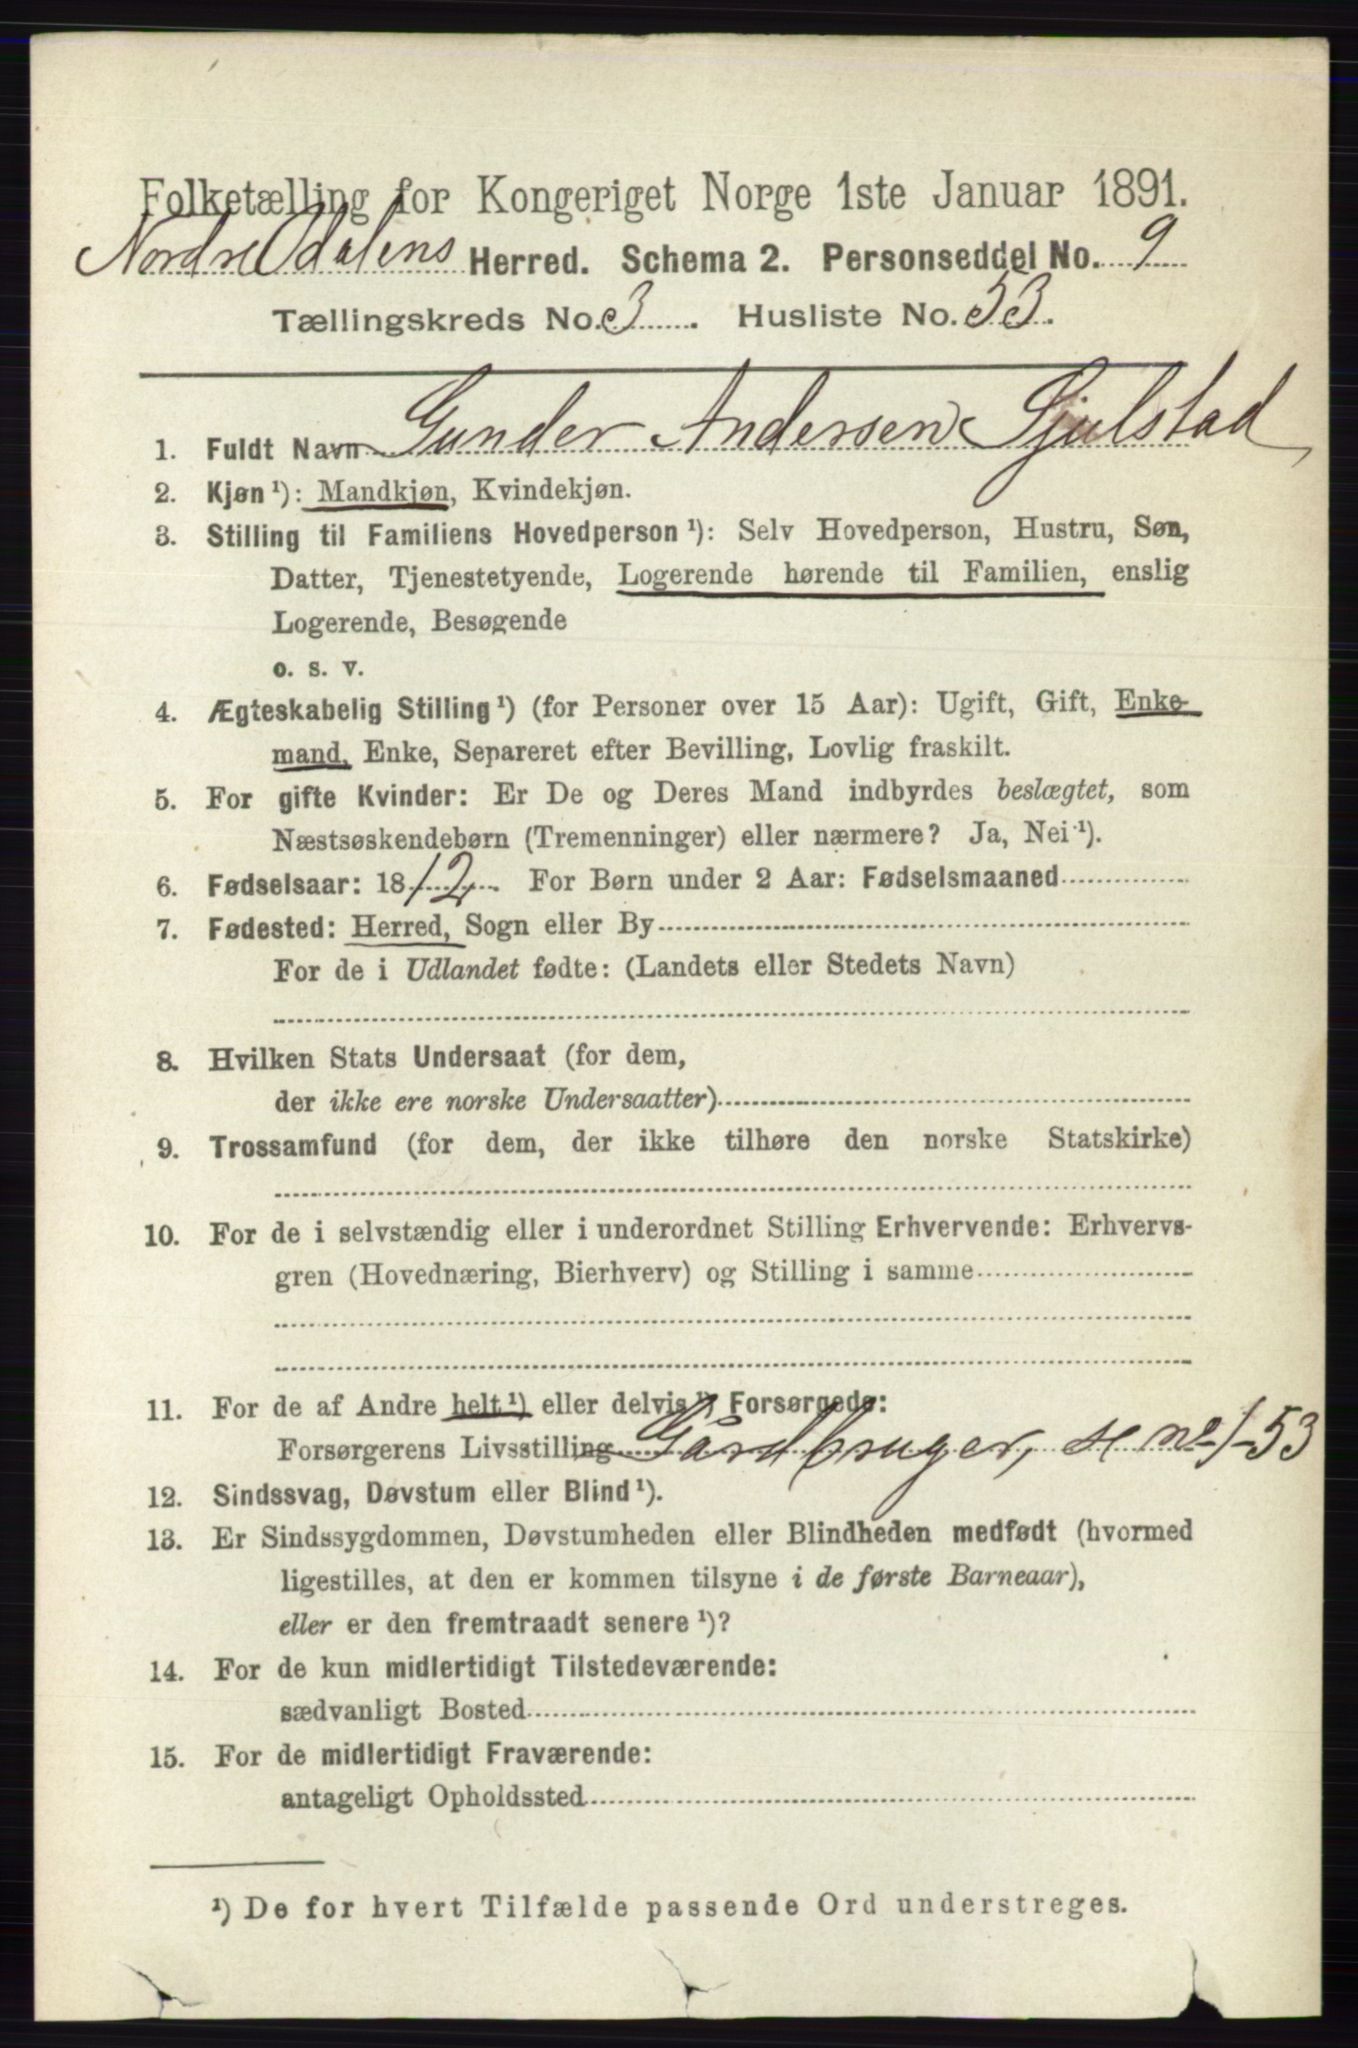 Folketælling for Kongeriget Norge 1ste Januar 1891.
Nordre Odalens Herred. Schema 2. Personseddel No. 9
Tællingskreds No. 3. Husliste No. 53.
1. Fuldt Navn Gunder Andersen Sjulstad
2. Kjøn¹): Mandkjøn, Kvindekjøn.
3. Stilling til Familiens Hovedperson¹): Selv Hovedperson, Hustru, Søn,
Datter, Tjenestetyende, Logerende hørende til Familien, enslig
Logerende, Besøgende
o. s. v.
4. Ægteskabelig Stilling¹) (for Personer over 15 Aar): Ugift, Gift, Enke-
mand, Enke, Separeret efter Bevilling, Lovlig fraskilt.
5. For gifte Kvinder: Er De og Deres Mand indbyrdes beslægtet, som
Næstsøskendebørn (Tremenninger) eller nærmere? Ja, Nei¹).
6. Fødselsaar: 1812. For Børn under 2 Aar: Fødselsmaaned
7. Fødested: Herred, Sogn eller By
For de i Udlandet fødte: (Landets eller Stedets Navn)
8. Hvilken Stats Undersaat (for dem,
der ikke ere norske Undersaatter)
9. Trossamfund (for dem, der ikke tilhøre den norske Statskirke)
10. For de i selvstændig eller i underordnet Stilling Erhvervende: Erhvervs-
gren (Hovednæring, Bierhverv) og Stilling i samme
11. For de af Andre helt¹) eller delvis¹) Forsørgede:
Forsørgerens Livsstilling Gårdbruger, se no 1-53
12. Sindssvag, Døvstum eller Blind¹).
13. Er Sindssygdommen, Døvstumheden eller Blindheden medfødt (hvormed
ligestilles, at den er kommen tilsyne i de første Barneaar),
eller er den fremtraadt senere¹)?
14. For de kun midlertidigt Tilstedeværende:
sædvanligt Bosted
15. For de midlertidigt Fraværende:
antageligt Opholdssted
¹) De for hvert Tilfælde passende Ord understreges.